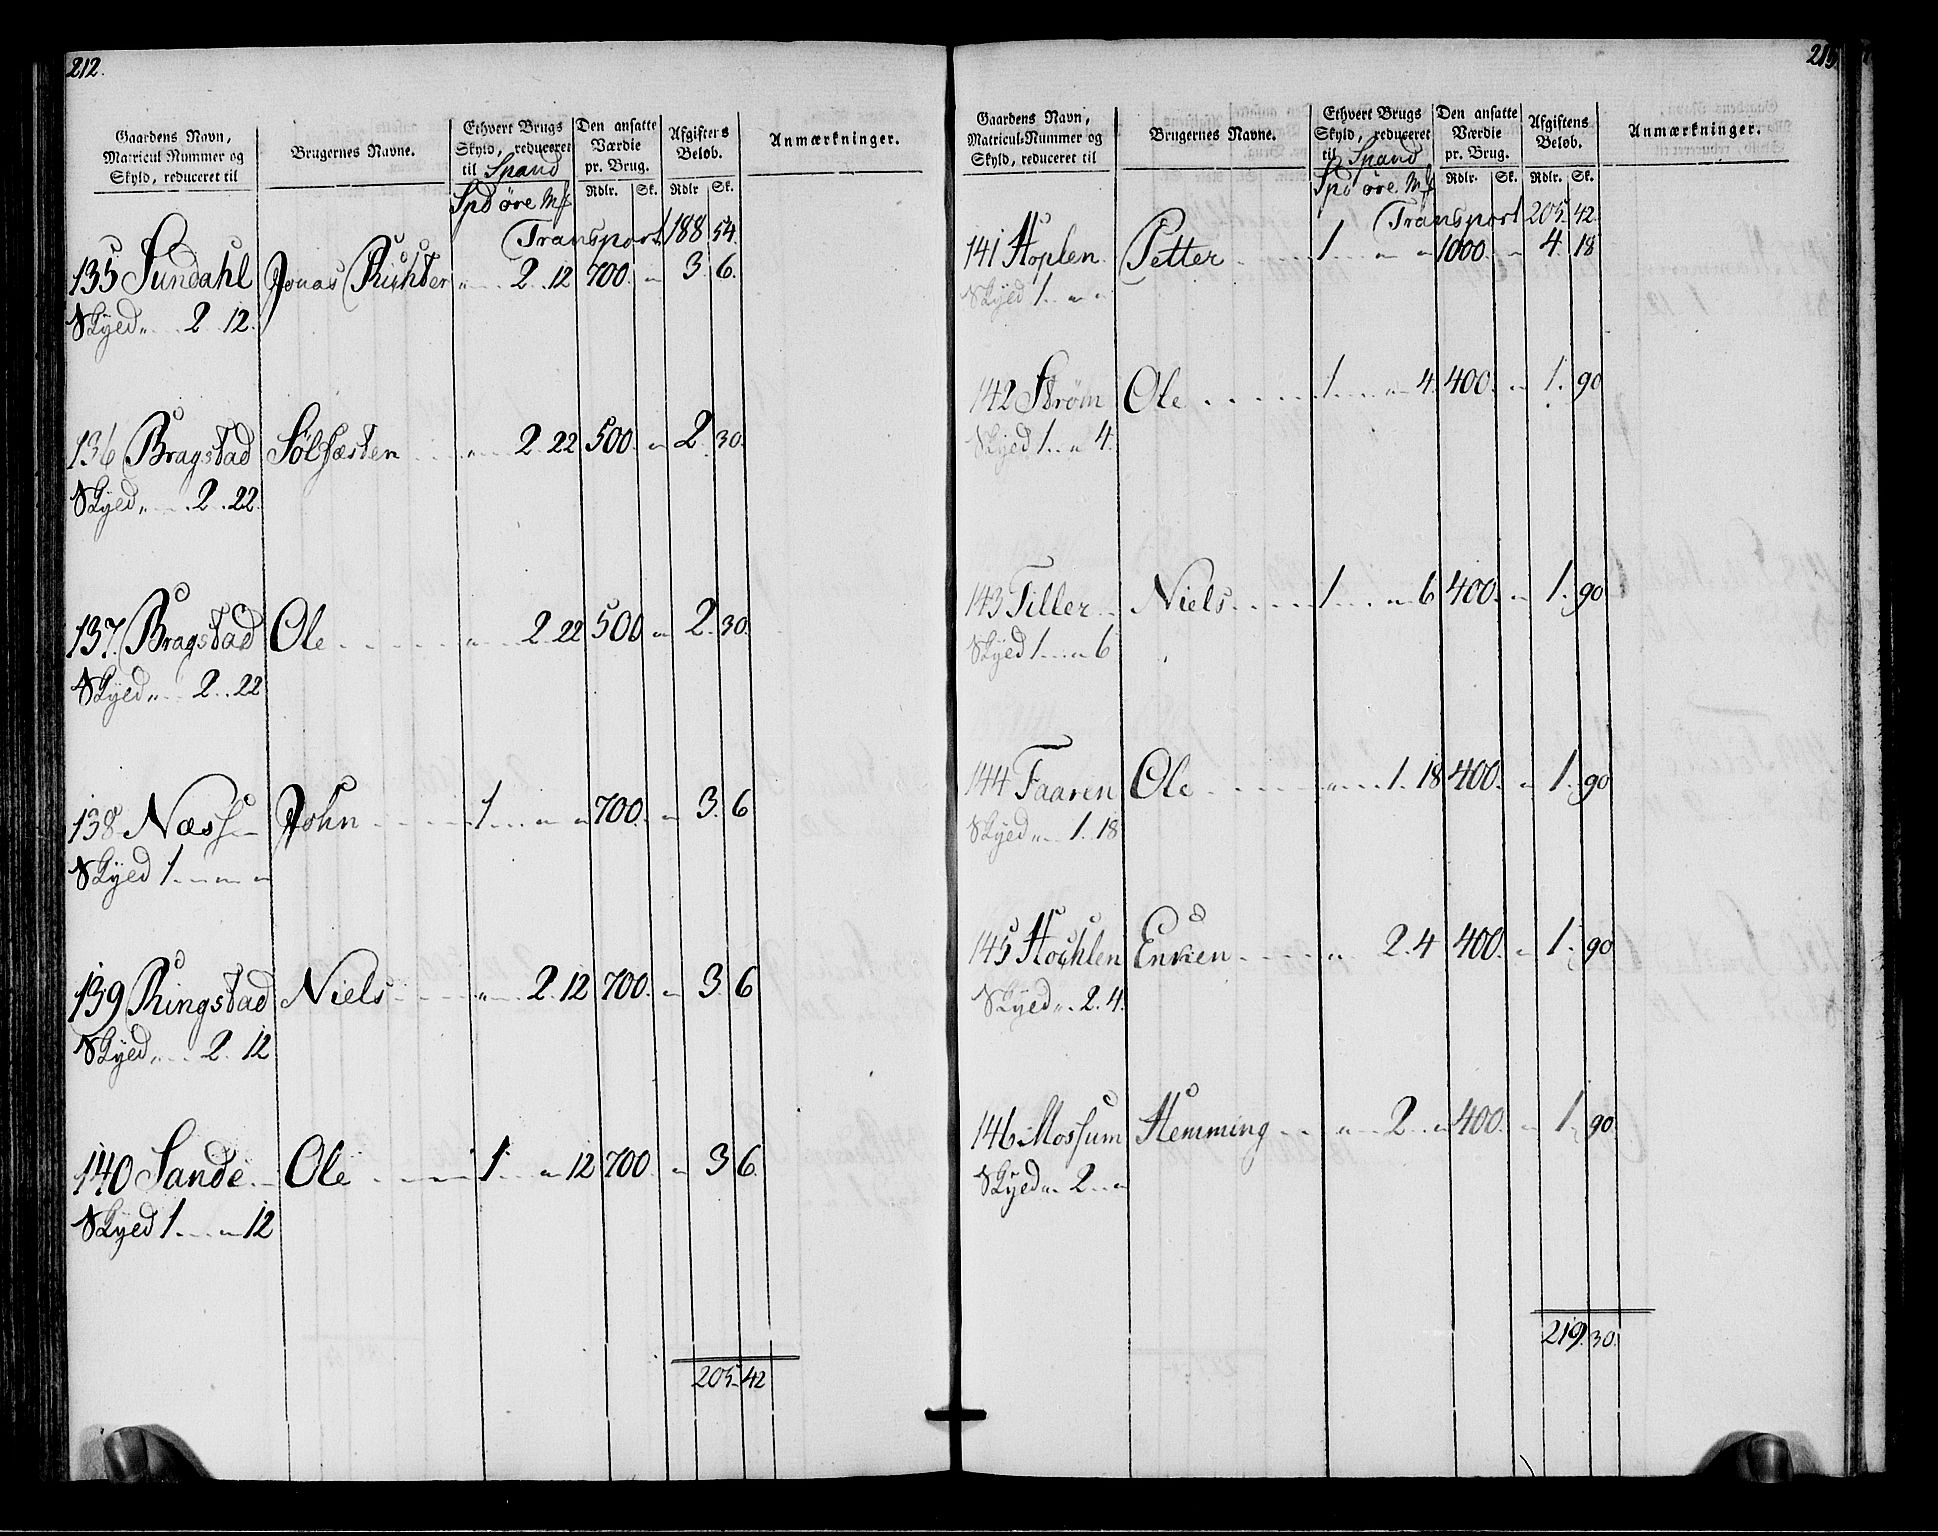 212.
Gaardens Navn, Matricul Nummer og Skyld, reduceret til
Brugernes Navne.
Ethvert Brugs Skyld, reduceret til Spand
Den ansatte Værdie pr. Brug.
Afgifters Beløb.
Anmærkninger.
Spd øre Mß Rdlr. Sk. Rdlr Sk.
Transport 188 54
135 Sundahl Jonas Richter " 2 12 700 " 3 6.
Skyed " 2 12.
136 Bragstad " 2 22 500 " 2 30.
Skyed " 2 22.
137. Bragstad Ole " 2 22 500 " 2 30.
Skyed " 2 22
138 Næss John 1 " " 700 " 3 6
Skyed 1 " "
139 Ringstad Niels " 2 12 700 " 3 6
Skyed " 2 12
140 Sande Ole 1 " 12 700 " 3 6
Skyed 1 " 12
205. 42
213.
Gaardens Navn, Matricul-Nummer og Skyld, reduceret til
Brugernes Navne.
Ethvert Brugs Skyld, reduceret til Spand
Den ansatte Værdie pr. Brug.
Afgiftens Beløb.
Anmærkninger.
Spd øre Mß Rdlr. Sk. Rdlr. Sk.
Transport 205. 42.
141 Hoplen Petter 1 " " 1000 " 4 18
Skyed 1 " "
142 Strøm Ole 1 " 4 400 " 1. 90
Skyed 1 " 4.
143 Tiller Niels 1 " 6 400 " 1. 90
Skyed 1 " 6
144 Faaren Ole " 1 18 400 " 1. 90
Skyed " 1 18
145 Enken " 2. 4 400 " 1. 90
Skyed " 2. 4.
146 Mossum Hemming " 2 " 400 " 1. 90
Skyed " 2 "
219. 30.